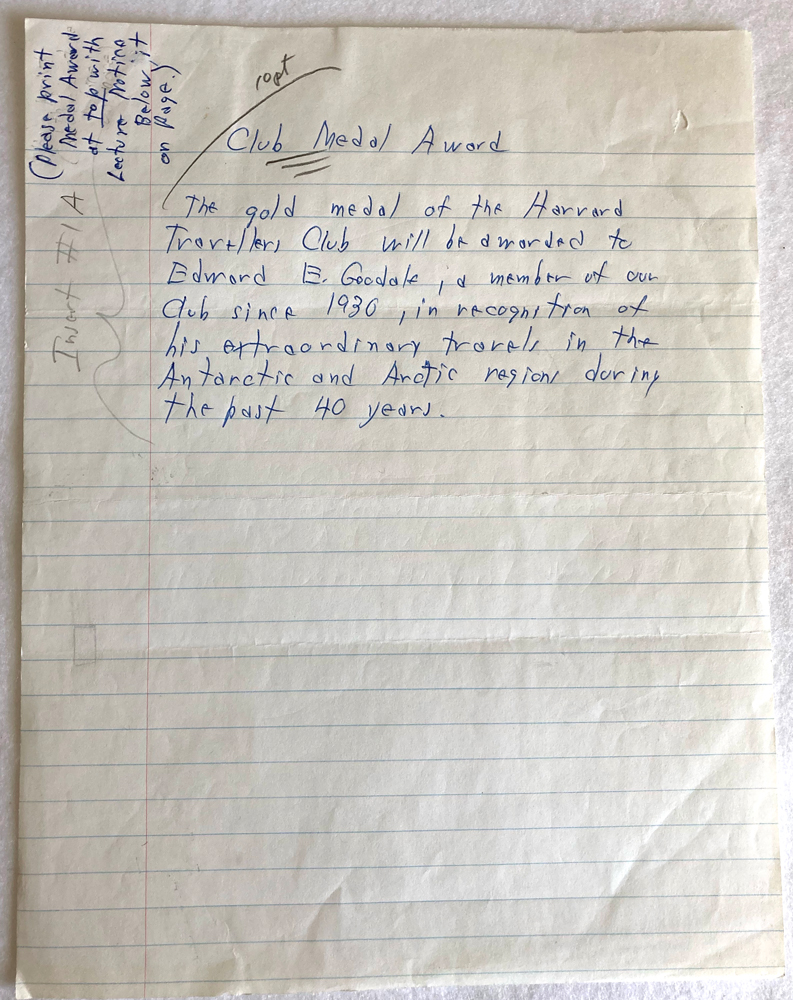 (Please print
Medal Award
at top with
Lecture Notice
Below it
on page.)
Insert #1A
10pt
Club Medal Award
The gold medal of the Harvard
Travellers Club will be awarded to
Edward E. Goodale, a member of our
Club since 1930, in recognition of
his extraordinary travels in the
Antarctic and Arctic regions during
the past 40 years.